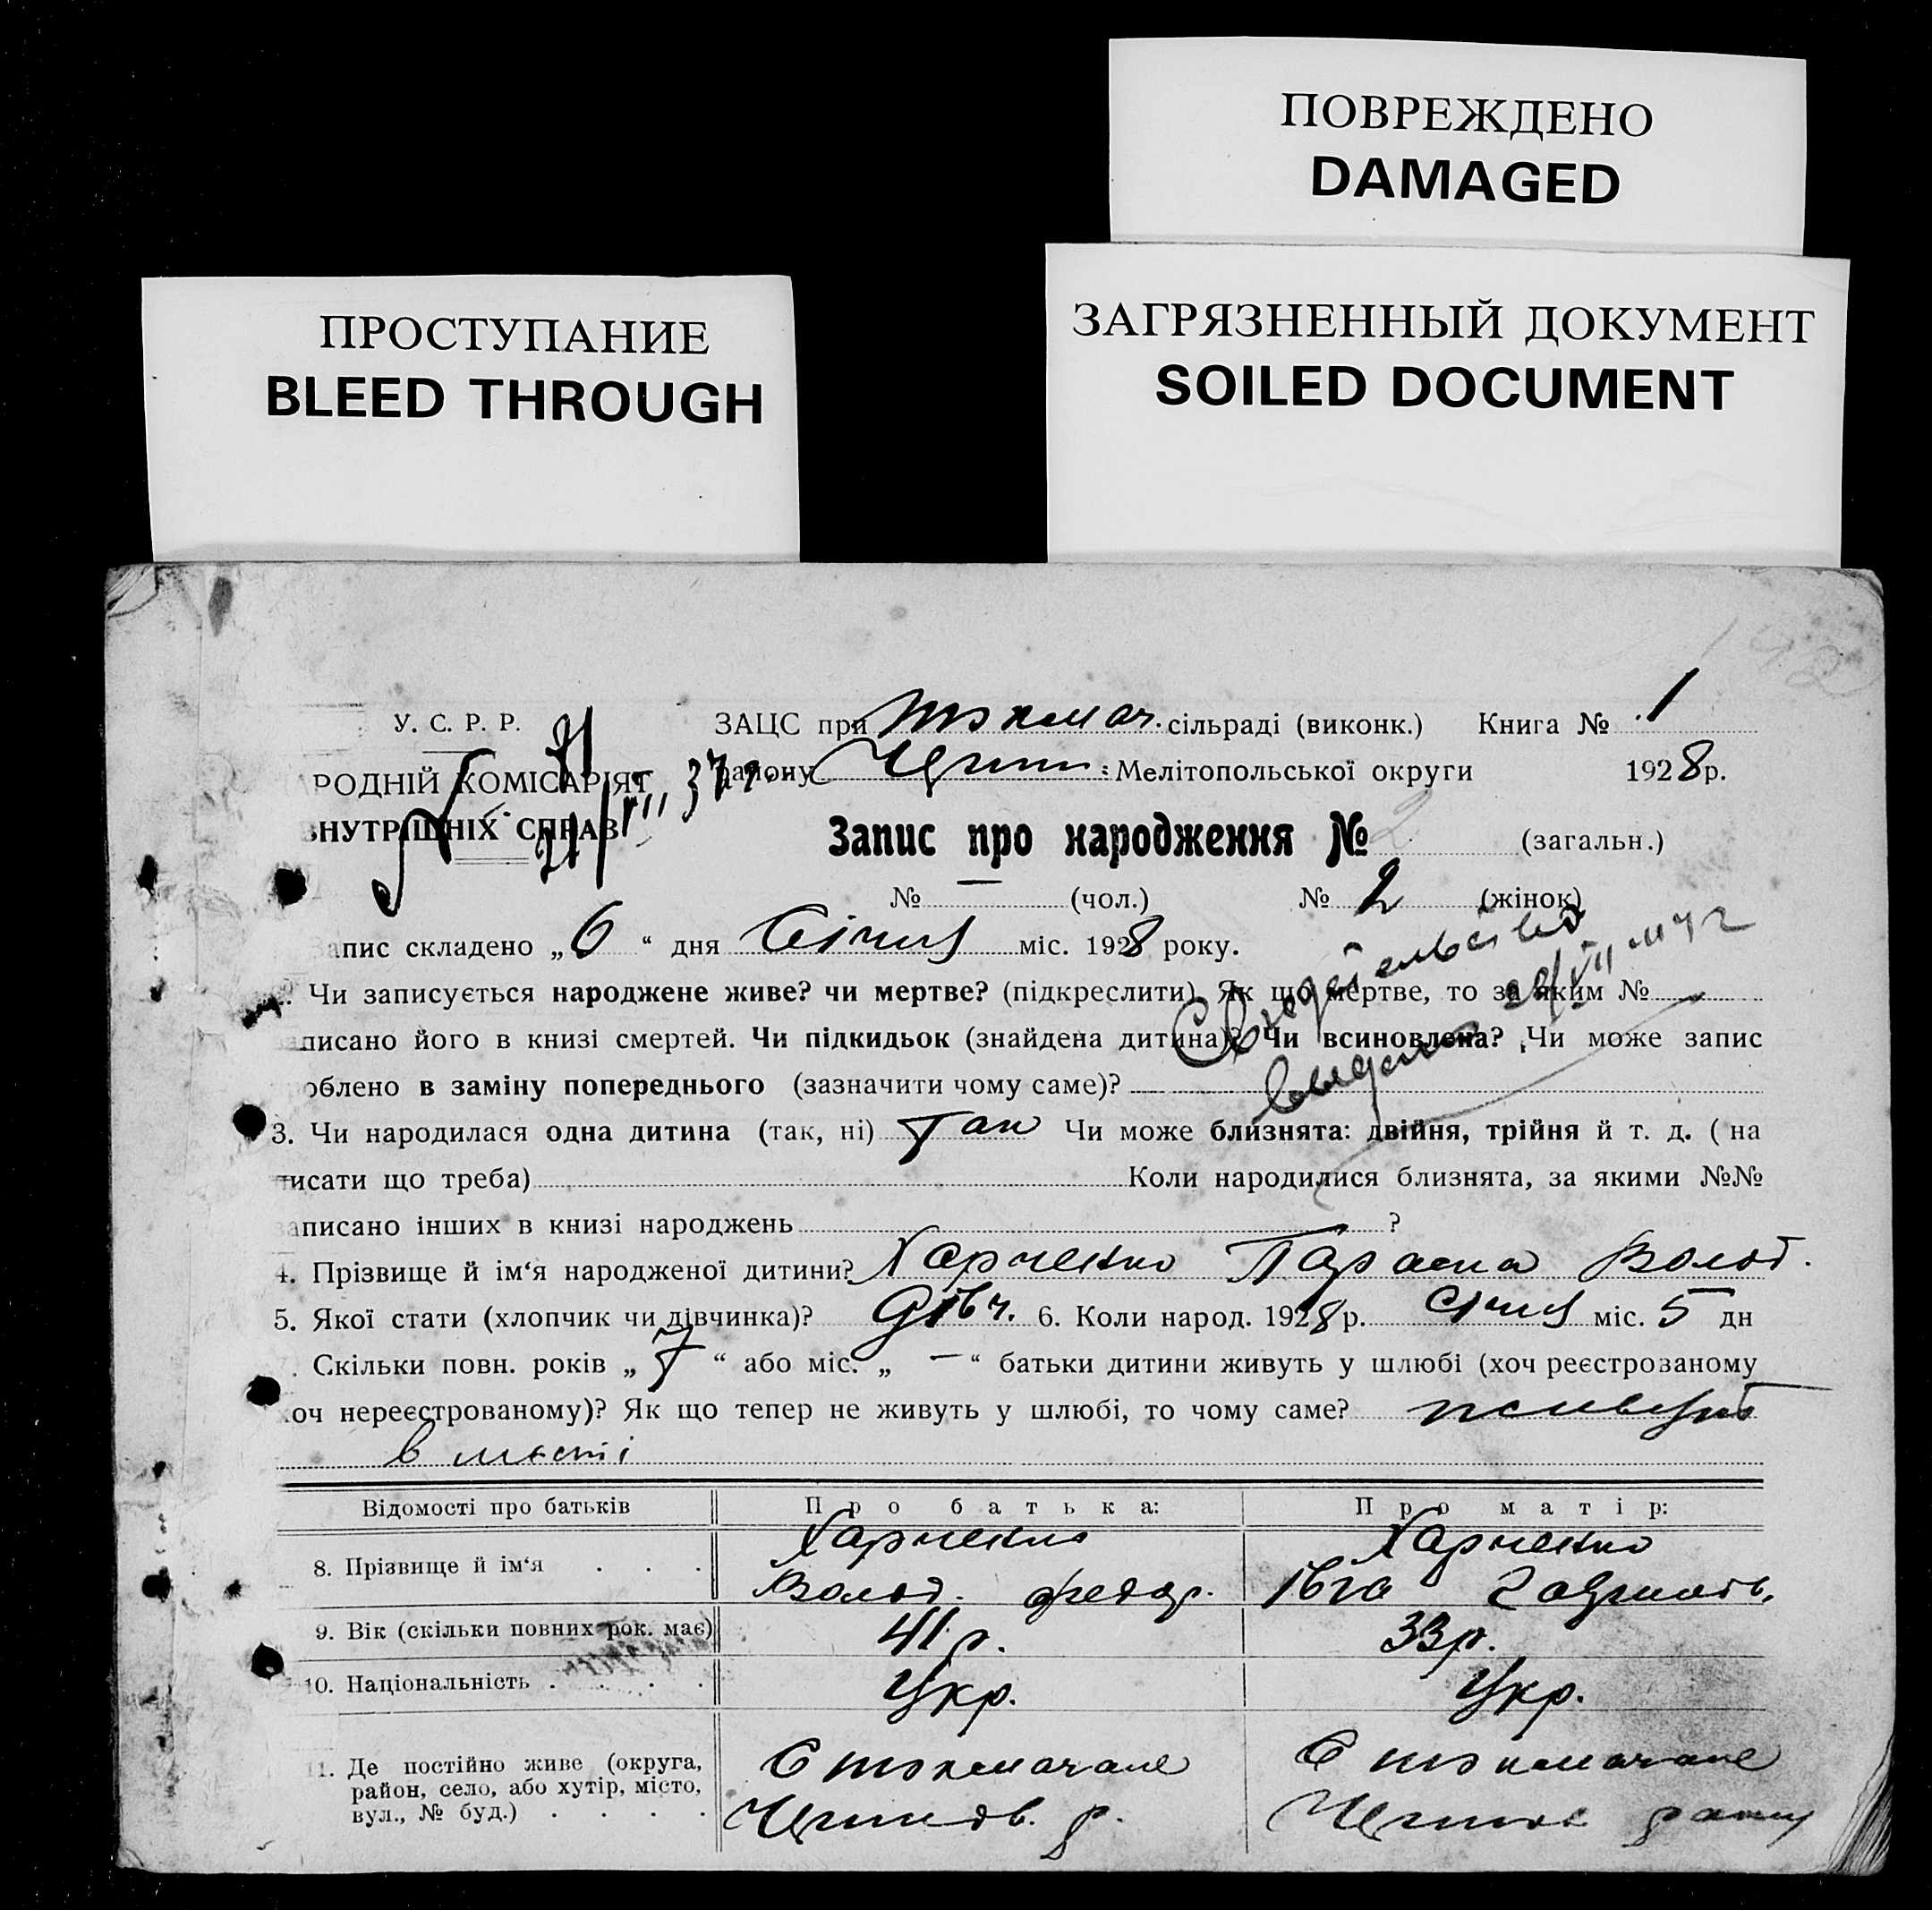 ПОВРЕЖДЕНО
DAMAGED
ПРОСТУПАНИЕ
BLEED THROUGH
ЗАГРЯЗНЕННЫЙ ДОКУМЕНТ
SOILED DOCUMENT
У. С. Р. Р.
РОДНІЙ КОМІСАРІЯТ
ВНУТРІШНІХ СПРАВ
ЗАЦС при Токмач. сільраді (виконк.) Книга № 1
району : Мелітопольської округи 1928 р.
Запис про народження № 2 (загальн.)
№ — (чол.) № 2 (жінок)
Запис складено „ 6 “ дня Січня міс. 1928 року.
Чи записується народжене живе? чи мертве? (підкреслити). Як що мертве, то за яким №
писано його в книзі смертей. Чи підкидьок (знайдена дитина)? Чи всиновлена? Чи може запис
облено в заміну попереднього (зазначити чому саме)?
3. Чи народилася одна дитина (так, ні) Так Чи може близнята: двійня, трійня й т. д. ( на
писати що треба) Коли народилися близнята, за якими №№
аписано інших в книзі народжень ?
4. Прізвище й ім‘я народженої дитини? Харченко Параска Волод.
5. Якої стати (хлопчик чи дівчинка)? дівч. 6. Коли народ. 1928 р. Січня міс. 5 дн
. Скільки повн. років „ 7 “ або міс. „ — “ батьки дитини живуть у шлюбі (хоч реєстрованому
хоч нереєстрованому)? Як що тепер не живуть у шлюбі, то чому саме? живуть
в
Відомості про батьків Про батька: Про матір:
8. Прізвище й ім‘я . . . Харченко Волод. Федор. Харченко Івга
9. Вік (скільки повних рок. має) 41 р. 33 р.
10. Національність . . . . Укр. Укр.
11. Де постійно живе (округа,
район, село, або хутір, місто,
вул., № буд.) . . . .
С Токмачане
р.
С Токмачане
Свидетельство
выдано